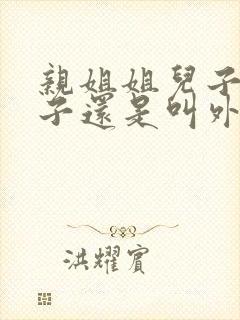 親姐姐兒子
子還是叫外
洪耀賓